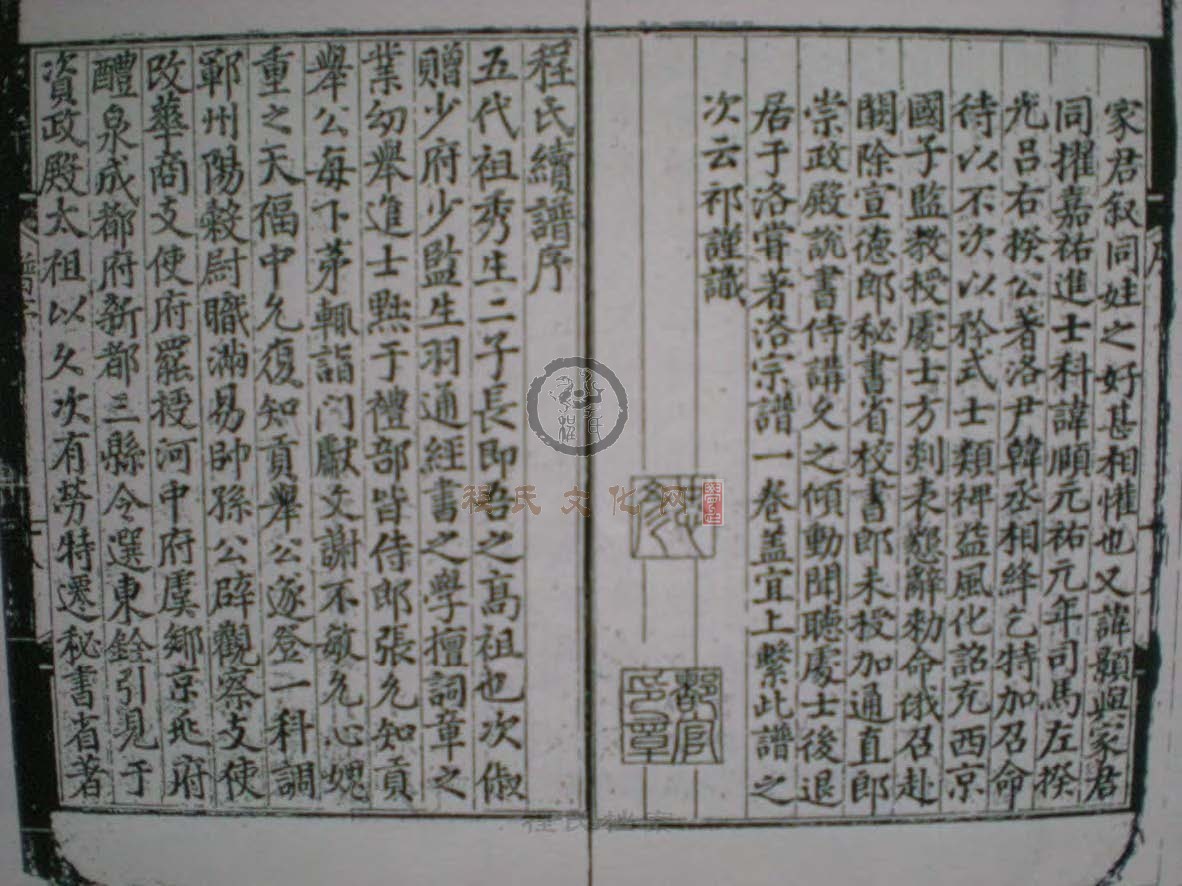 家君叙同姓之好甚相懽也又諱顥與家君
同擢嘉祐進士科諱頤元祐元年司馬左揆
光呂右揆公著洛尹韓丞相絳乞特加召命
待以不次以矜式士類裨益風化詔充西京
國子監教授處士方剡表懇辭勅命俄召赴
闕除宣德郎秘書省校書郎未授加通直郎
崇政殿說書侍講久之傾動聞聽處士後退
居于洛嘗著洛宗譜一卷盖宜上繫此譜之
次云祁謹識
都官
印章
程氏續譜序
五代祖秀生二子長即吾之高祖也次俶
贈少府少監生羽通經書之學擅詞章之
業初舉進士黜于禮部皆侍郎張允知貢
舉公每下苐輒詣門獻文謝不敏允心媿
重之天福中允復知貢舉公遂登一科調
鄆州陽穀尉職滿易帥孫公辟觀察支使
改華商支使府罷授河中府虞鄉京兆府
醴泉成都府新都三縣令選東銓引見于
資政殿太祖以久次有勞特遷秘書省著
程氏文化网